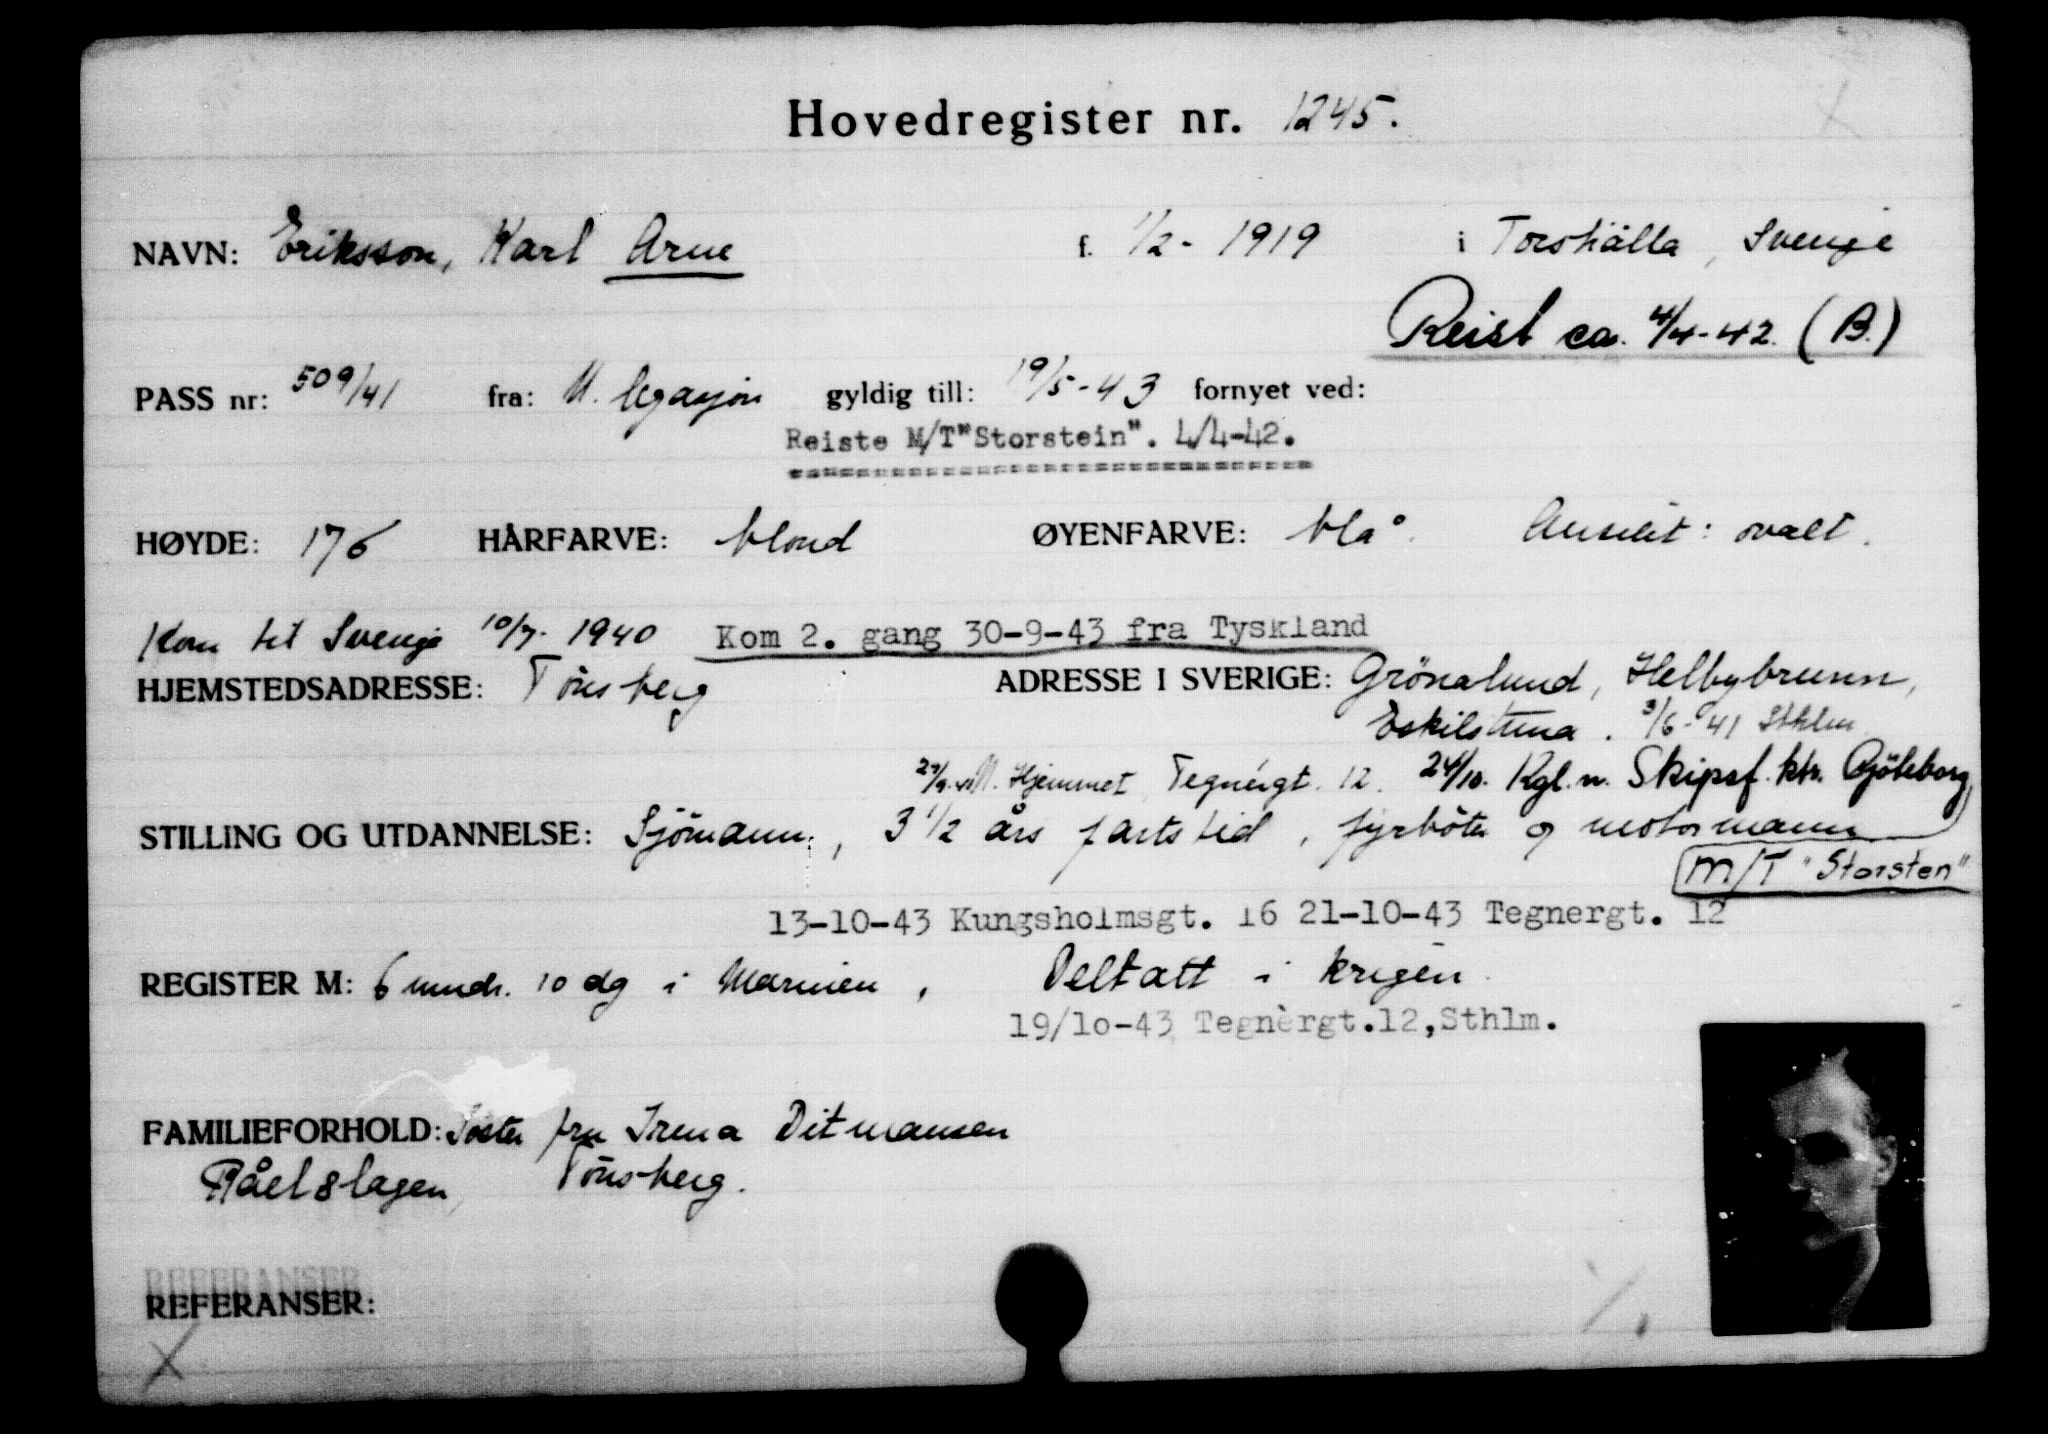 Hovedregister nr. 1245.
NAVN: Eriksson, Karl Arne f. 1/2 - 1919 i Torshälla, Sverige
Reist ca. 4/4-42. (B.)
PASS nr: 509/41 fra: N. legasjon gyldig till: 19/5-43 fornyet ved:
Reiste M/T"Storstein". 4/4-42.
HØYDE: 176 HÅRFARVE: blond ØYENFARVE: blå. Ansikt: ovalt.
Kom til Sverige 10/7- 1940 Kom 2. gang 30-9-43 fra Tyskland
HJEMSTEDSADRESSE: Tönsberg ADRESSE I SVERIGE: Grönalund, Helbybrunn,
Eskilstuna. 3/6-41 Sthlm
Hjemmet, Tegnérgt. 12. 24/10. Kgl. n. Skipsf. ktr. Gøteborg,
STILLING OG UTDANNELSE: Sjömann, 3 1/2 års fartstid, fyrböter og motormann
M/T "Storsten"
13-10-43 Kungsholmsgt. 16 21-10-43 Tegnergt. 12
REGISTER M: 6 mndr. 10 dg i Marinen, Deltatt i krigen.
19/10-43 Tegnèrgt.12,Sthlm.
FAMILIEFORHOLD: Söster fru Irena Ditmansen
Råelslagen, Tönsberg.
REFERANSER
REFERANSER: